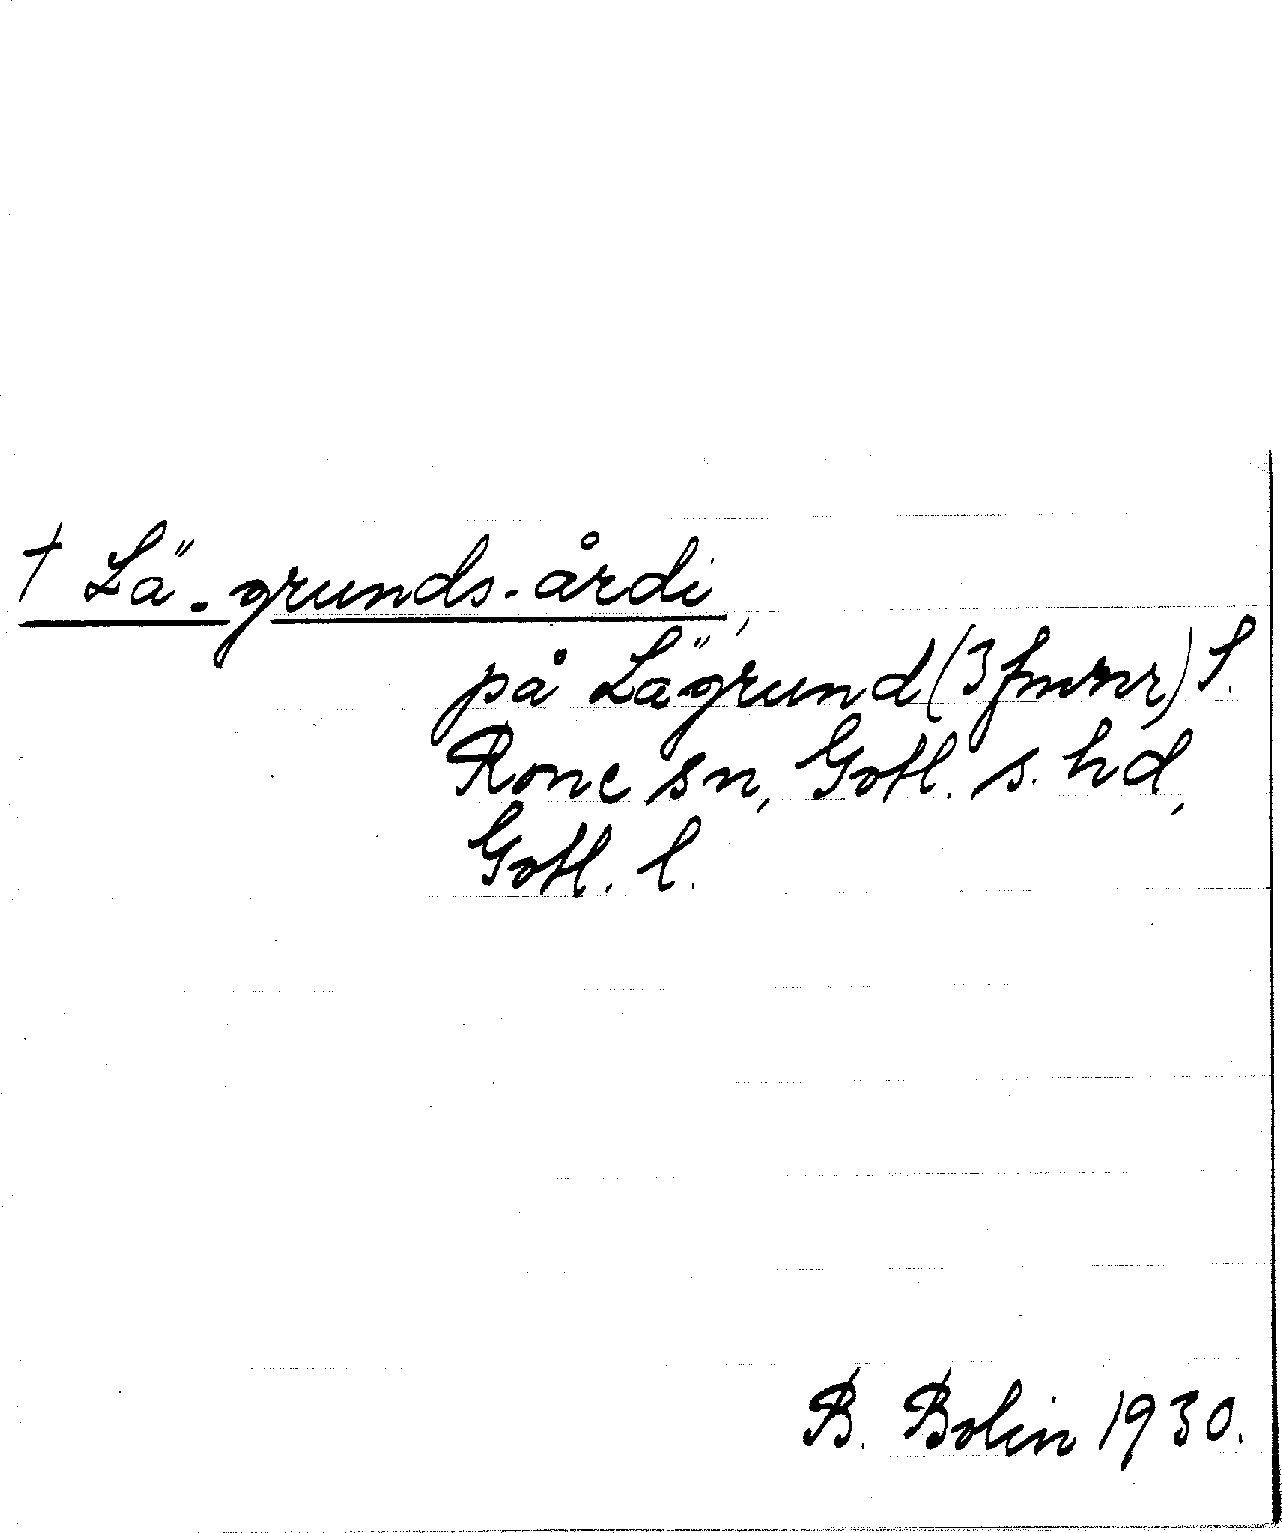 † Lä-grunds-årdi,
på Lägrund (3 fmrnr) f.
Rone sn, Gotl. s. hd,
Gotl. l.
B. Bolin 1930.